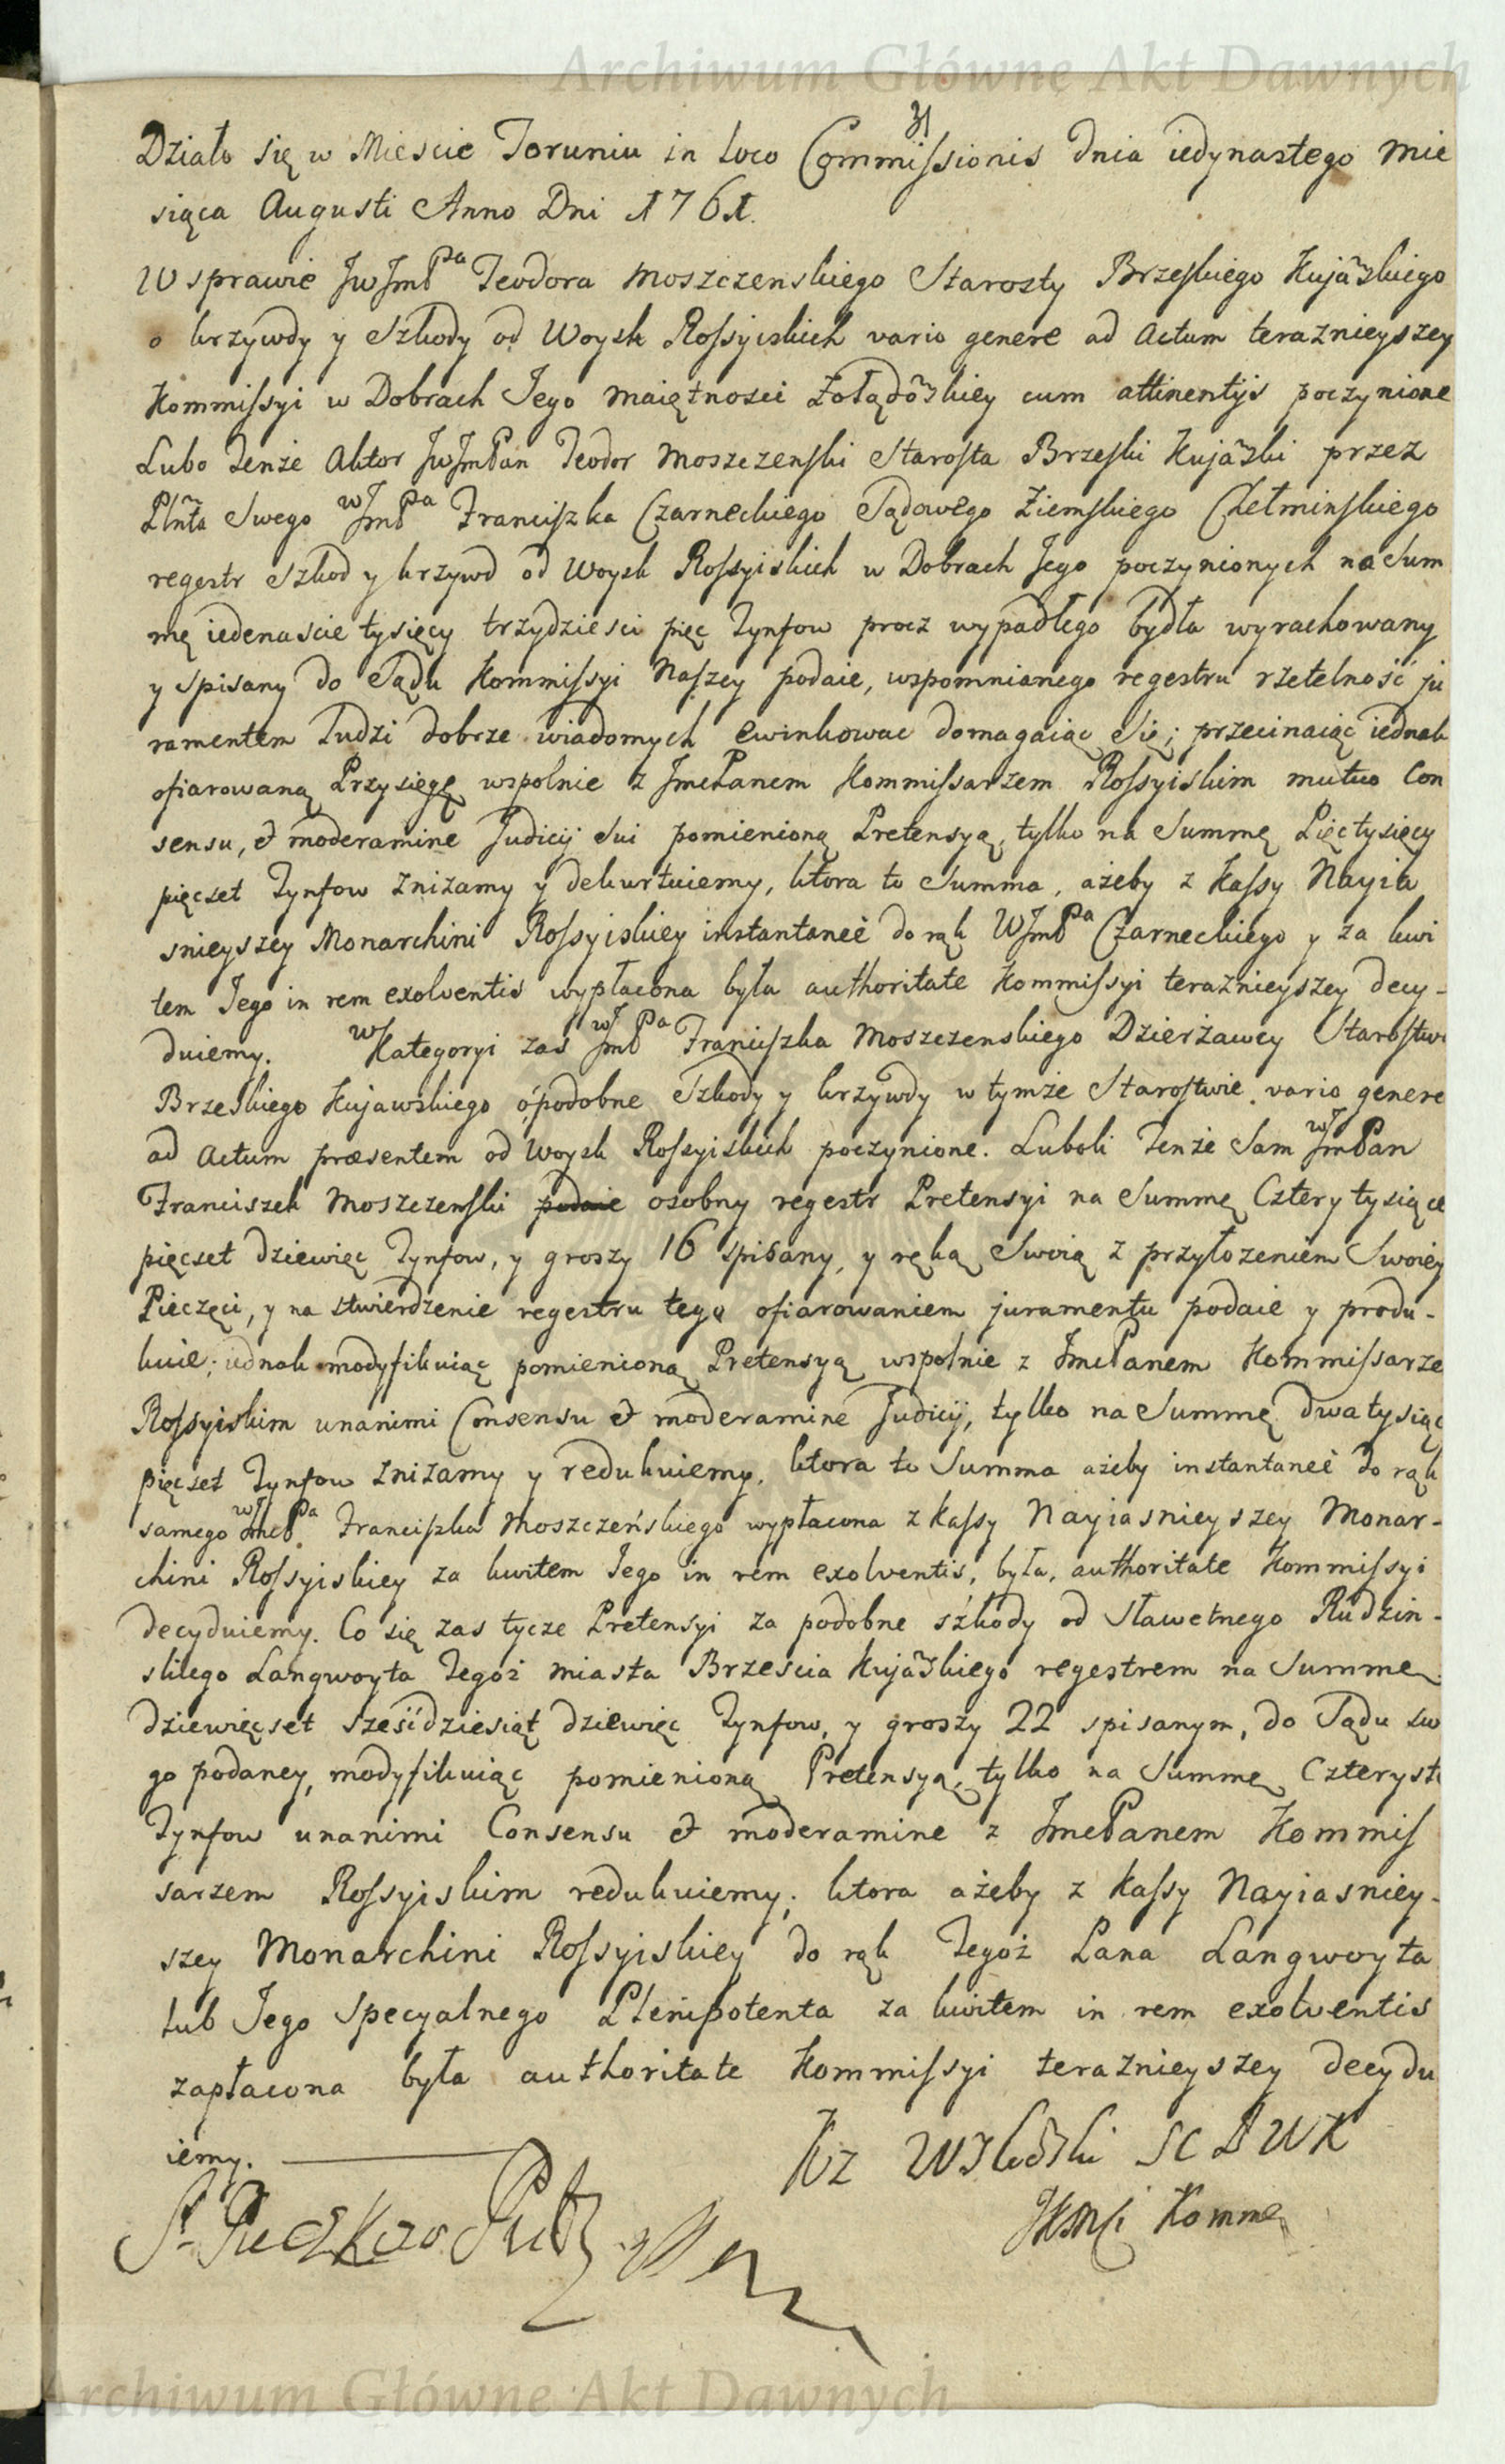 Archiwum Główne Akt Dawnych
31
Działo się w Mieście Toruniu in loco Commissionis dnia iedynastego Mie
siąca Augusti Anno Dni 1761.
W sprawie JwJmPa Teodora Moszczenskiego Starosty Brzeskiego Kujaskiego
o krzywdy y Szkody od Woysk Rossyiskich vario genere ad Actum teraznieyszey
Kommissyi w Dobrach Jego Maiętnosci Zołądoskiey cum attinentijs poczynione
Lubo Tenże Aktor JwJmPan Teodor Moszczenski Starosta Brzeski Kujaski przez
Plnta Swego WJmPa Franciszka Czarneckiego Sądowego Ziemskiego Chełminskiego
regestr Szkod y krzywd od Woysk Rossyiskich w Dobrach Jego poczynionych na Sum
mę iedenascie tysięcy trzydziesci pięc Tynfow procz wypadłego bydła wyrachowany
y spisany do Sądu Kommissyi Naszey podaie, wspomnianego regestru rzetelność ju
ramentem Ludzi dobrze wiadomych ewinkowac domagaiąc Się; przecinaiąc iednak
ofiarowaną Przysięgę wspolnie z JmcPanem Kommissarzem Rossyiskim mutuo Con
sensu, et moderamine Judicij Sui pomienioną Pretensyą, tylko na Summę Pięctysięcy
pięcset Tynfow Zniżamy y dekurtuiemy, ktora to Summa, ażeby z Kassy Nayia
snieyszey Monarchini Rossyiskiey instantaneè do rąk WJmPa Czarneckiego y za kwi
tem Jego in rem exolventis wypłacona była authoritate Kommissyi teraznieyszey decy-
duiemy. W Kategoryi zas WJmPa Franciszka Moszczenskiego Dzierżawcy Starostwa
Brzeskiego Kujawskiego o podobne Szkody y krzywdy w tymże Starostwie vario genere
ad Actum præsentem od Woysk Rossyiskich poczynione. Luboli Tenże Sam WJmPan
Franciszek Moszczenski podaie osobny regestr Pretensyi na Summę Cztery tysiące
pięcset dziewięc Tynfow, y groszy 16 spisany, y ręką Swoią z przyłożeniem Swoiey
Pieczęci, y na stwierdzenie regestru tego ofiarowaniem juramentu podaie y produ-
kuie; iednak modyfikuiąc pomienioną Pretensyą wspolnie z JmcPanem Kommissarze
Rossyiskim unanimi Consensu et moderamine Judicij, tylko na Summę dwatysiąc
pięcset Tynfow zniżamy y redukuiemy, ktora to Summa ażeby instantaneè do rąk
samego WJmcPa Franciszka Moszczeńskiego wypłacona z Kassy Nayiasnieyszey Monar-
chini Rossyiskiey za kwitem Jego in rem exolventis, była, authoritate Kommissyi
decyduiemy. Co się zas tycze Pretensyi za podobne szkody od Sławetnego Rudzin-
skiego Langwoyta Tegoż Miasta Brzescia Kujaskiego regestrem na Summę
dziewięcset sześćdziesiąt dziewięc Tynfow, y groszy 22 spisanym, do Sądu sw
go podaney, modyfikuiąc pomienioną Pretensyą, tylko na Summę Czterysta
Tynfow unanimi Consensu et moderamine z JmcPanem Kommis
sarzem Rossyiskim redukuiemy; ktora ażeby z Kassy Nayiasniey-
szey Monarchini Rossyiskiey do rąk Tegoż Pana Langwoyta
lub Jego Specyalnego Plenipotenta za kwitem in rem exolventis
zapłacona była authoritate Kommissyi teraznieyszey decydu
iemy.
Archiwum Główne Akt Dawnych